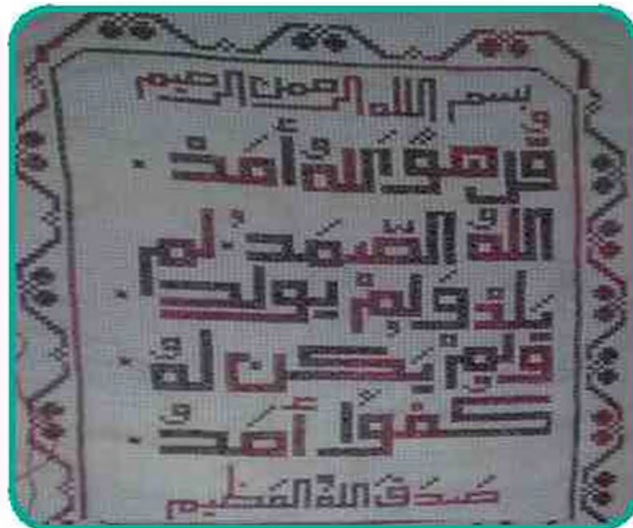 بسم الله الرحمن الرحيم
قُل هُوَ اللّٰهُ أَحَدٌ
اللّٰهُ الصَّمَدُ لَم
يَلِدْ وَلَمْ يُولَد
وَلَمْ يَكُن لَّهُ
كُفُوًا أَحَدٌ
صَدَقَ اللّٰهُ العَظِيم